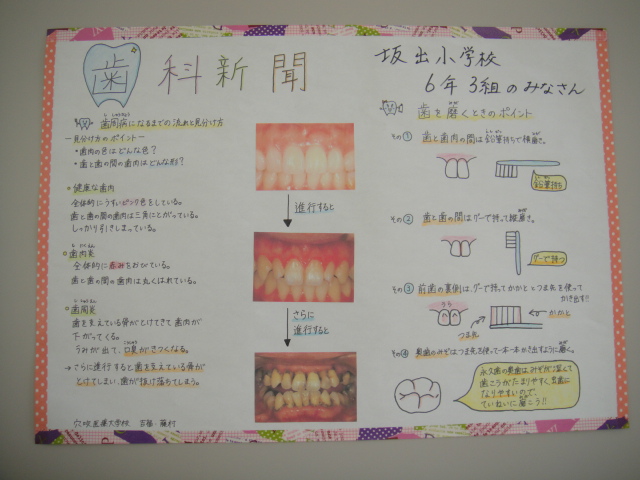 歯科新聞
坂出小学校
6年3組のみなさん
歯周病になるまでの流れと見分け方
ー見分け方のポイントー
・歯肉の色はどんな色？
・歯と歯の間の歯肉はどんな形？
健康な歯肉
全体的にうすいピンク色をしている。
歯と歯の間の歯肉は三角にとがっている。
しっかり引きしまっている。
歯肉炎
全体的に赤みをおびている。
歯と歯の間の歯肉は丸くはれている。
歯周炎
歯を支えている骨がとけてきて歯肉が
下がってくる。
うみが出て、口臭がきつくなる。
→さらに進行すると歯を支えている骨が
とけてしまい、歯が抜け落ちてしまう。
穴吹医療大学校
進行すると
さらに
進行すると
歯を磨くときのポイント
その① 歯と歯肉の間は鉛筆持ちで横磨き。
鉛筆持ち
その② 歯と歯の間はグーで持って縦磨き。
グーで持つ
その③ 前歯の裏側は、グーで持ってかかととつま先を使って
かき出す!!
うら
つま先
かかと
その④ 奥歯のみぞはつま先を使って一本一本かき出すように磨く。
永久歯の奥歯はみぞが深くて
歯こうがたまりやすく虫歯に
なりやすいので、
ていねいに磨こう!!